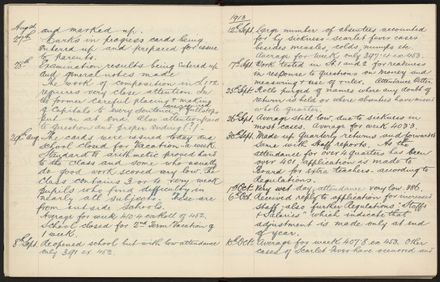 Augst
27th and marked up.
Marks in progress cards being
entered up and prepared for issue
to Parents.
28th Examination results being entered up
and general notes made
The work of Composition in
requires very close attention in
the former careful placing & making
of Capitals & every sentence
but in at end. Also attention
Questions and proper ending (?)
29th Aug The cards were issued today and
School closed for Vacation - a week.
Standard 2 arithmetic proved hard
& the Class and some who usually
do good work scored very low. The
class contains 3 or 4 very weak
pupils who find difficulty in
nearly all subjects. These are
from outside Schools.
Average for week 417.4 on Roll of 452.
School closed for 2nd Term Vacation of
1 week.
8th Sept. Reopened school but with low attendance
only 391 ex 452.
1913
12th Sept. Large number of absentees accounted
for by sickness - scarlet fever cases
besides measles, colds, mumps etc.
Average for week only 397 ex 453.
17th Sept. Work tested in and 2 for readiness
in response to questions on money and
measuring & use of rules. Attendance better.
25th Sept. Rolls purged of names where any doubt of
returns held or where absentees have missed
whole quarter.
26th Sept. Average still low, due to sickness in
most cases. Average for week 403.3.
30th Sept. Made up Quarterly returns and forwarded
same with Staff reports. As the
attendance for over a quarter has been
over 401 Application is made to
Board for extra teachers according to
regulations.
1st Oct. Very wet day, attendance very low 336.
6th Oct. Received reply to application for increased
staff; also further Regulations "Staffs
& Salaries" which indicate that
adjustment is made only at end
of year.
10th Oct. Average for week 407.8 ex 453. Other
cases of Scarlet Fever have occurred and